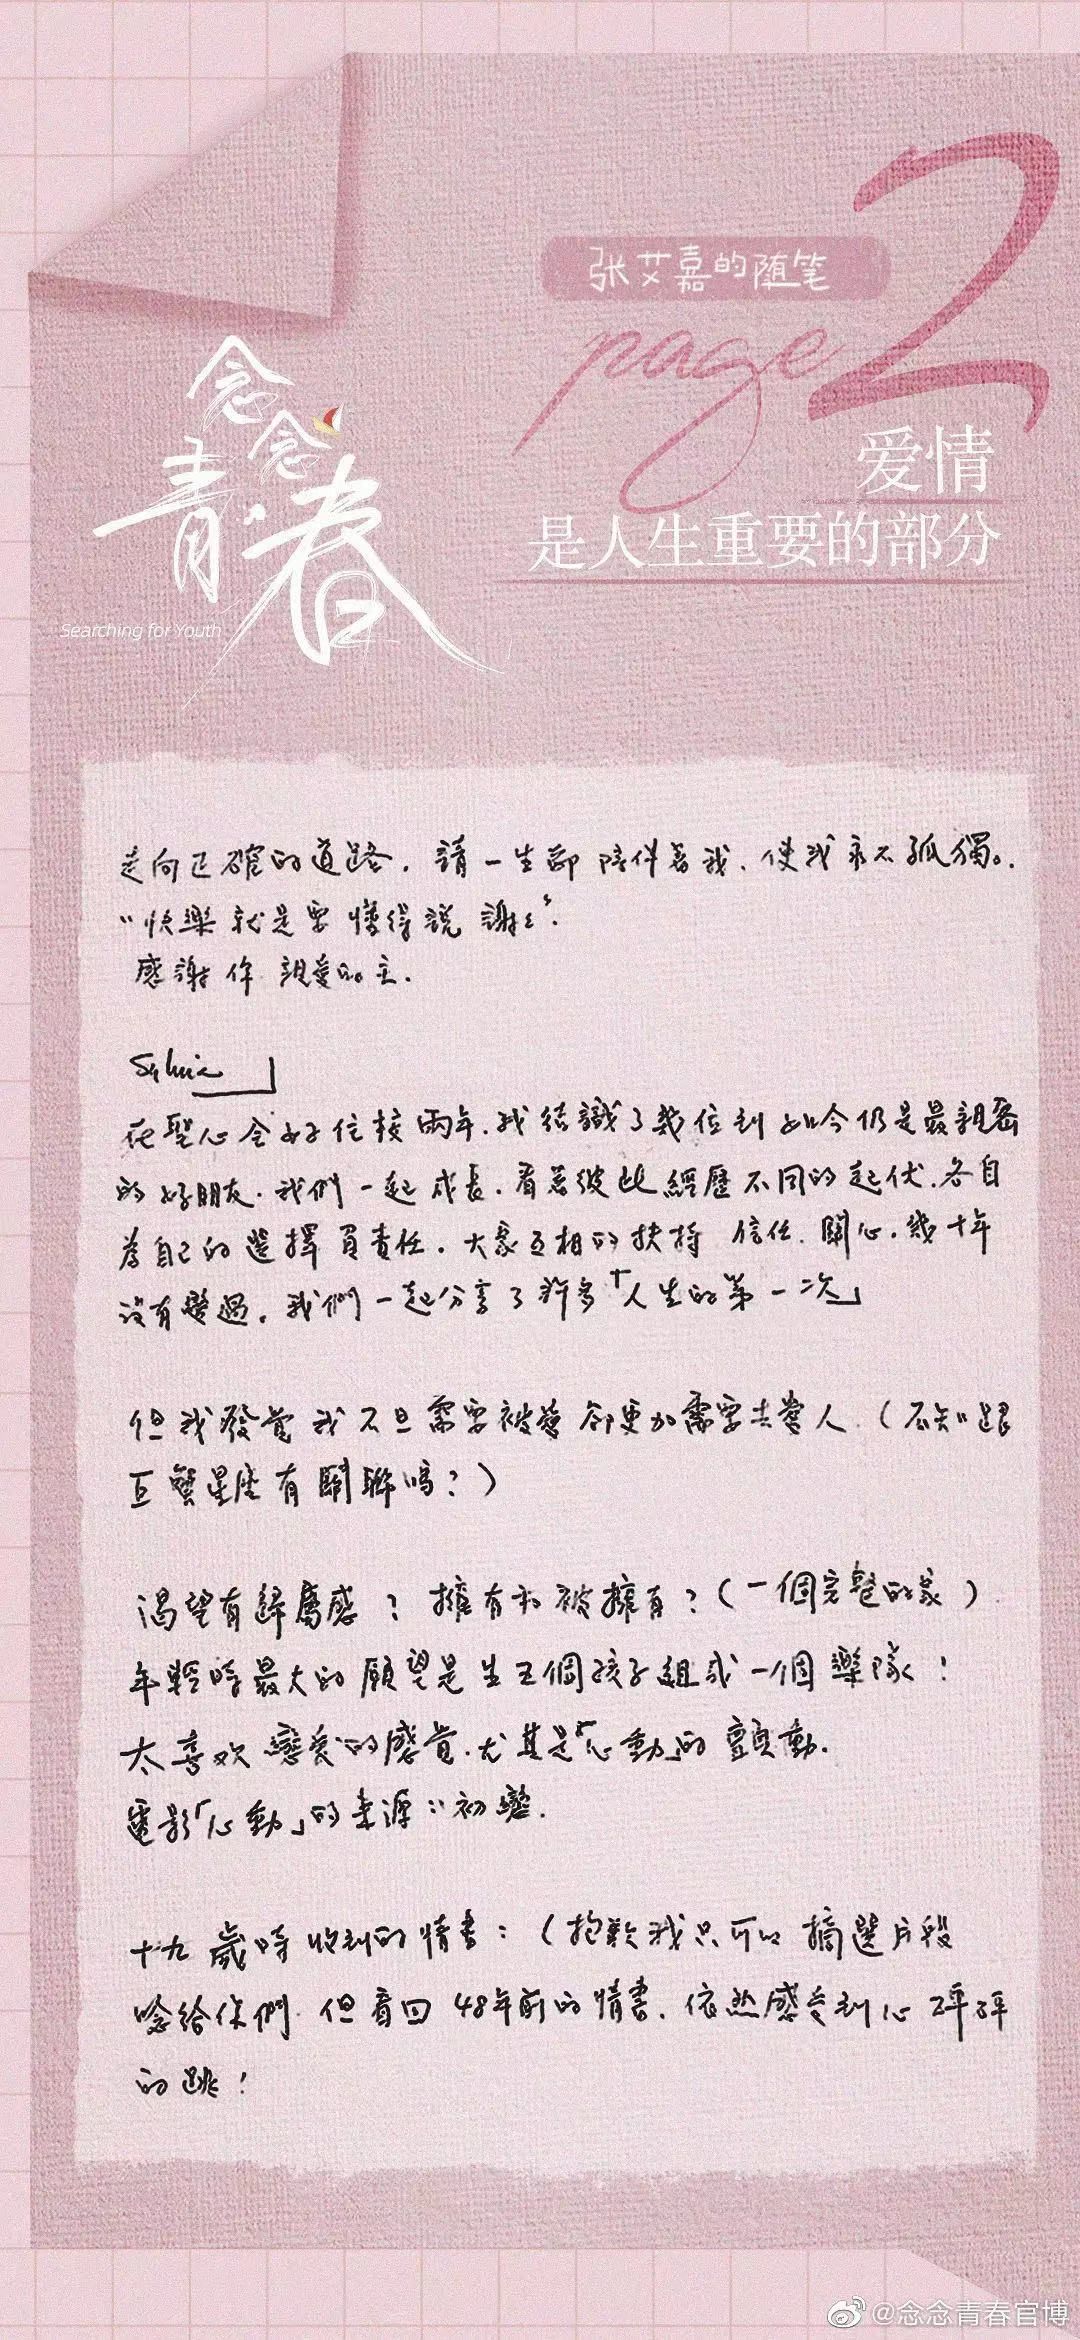 张艾嘉的随笔
page 2
念念青春
Searching for Youth
爱情
是人生重要的部分
走向正確的道路，請一生都陪伴著我、使我永不孤獨。
“快樂就是要懂得說謝謝”。
感謝你 親愛的主.
Sylvia
在聖心女子住校兩年、我結識了幾位到如今仍是最親密
的好朋友. 我們一起成長、看著彼此經歷不同的起伏、各自
為自己的選擇負責任、大家互相的扶持 信任、關心、幾十年
沒有變過。我們一起分享了許多「人生的第一次」
但我發覺我不旦需要被愛 卻更加需要去愛人.（不知跟
巨蟹星座有關聯嗎？）
渴望有歸屬感？擁有和被擁有？（一個完整的家）
年輕時最大的願望是生五個孩子組成一個樂隊！
太喜歡戀愛的感覺、尤其是「心動」的顫動.
電影「心動」的來源：初戀.
十九歲時收到的情書：（抱歉我只可以摘選片段
唸給你們 但看回48年前的情書、依然感受到心砰砰
的跳！
@念念青春官博